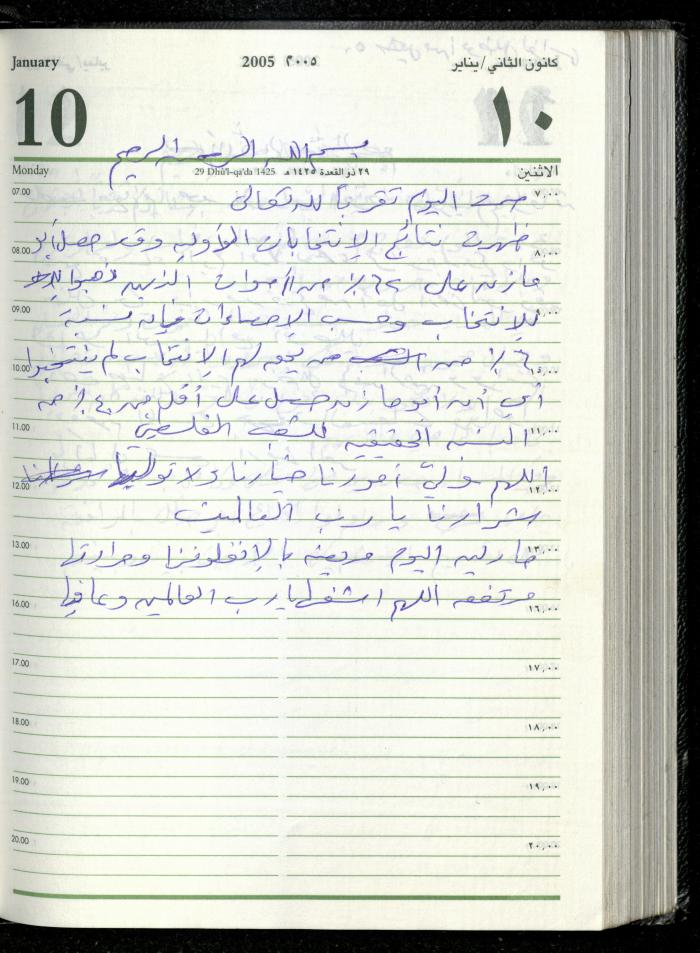 January 2005 ٢٠٠٥ كانون الثاني/يناير
10 ١٠
بسم الله الرحمن الرحيم
Monday 29 Dhū'l-qa'da 1425 ٢٩ ذو القعدة ١٤٢٥ هـ الاثنين
07.00 صمت اليوم تقرباً لله تعالى ٧,٠٠
ظهرت نتائج الانتخابات الأولية وقد حصل أبو
08.00 ٨,٠٠
مازن على ٦٢٪ من أصوات الذين ذهبوا
09.00 للإنتخاب وحسب الاحصاءات فإن نسبة
٪ من من يحق لهم الإنتخاب لم ينتخبوا
10.00
أي أن أبو مازن حصل على أقل من ٤٠٪ من
11.00 النسبة الحقيقية للشعب الفلسطيني ١١,٠٠
اللهم ولي أمورنا خيارنا ولا تولي
12.00 ١٢,٠٠
شرارنا يا رب العالمين
13.00 اليوم مريضة بالإنفلونزا وحرارتها ١٣,٠٠
مرتفعة اللهم اشفها يا رب العالمين وعافها
16.00 ١٦,٠٠
17.00 ١٧,٠٠
18.00 ١٨,٠٠
19.00 ١٩,٠٠
20.00 ٢٠,٠٠